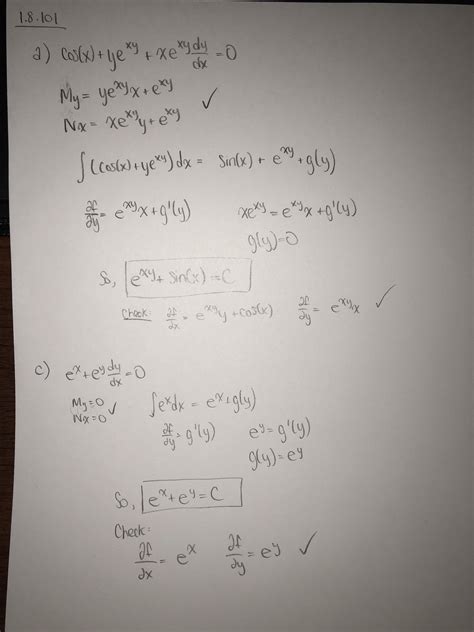 1.8.101
a) cos(x)+ye^{xy} + xe^{xy} dy/dx = 0
My = ye^{xy}x + e^{xy} ✓
Nx = xe^{xy}y + e^{xy}
∫(cos(x)+ye^{xy})dx = sin(x) + e^{xy} + g(y)
∂f/∂y = e^{xy}x + g'(y) xe^{xy} = e^{xy}x + g'(y)
g(y)=0
So, e^{xy} + sin(x) = C
Check: ∂f/∂x = e^{xy}y + cos(x) ∂f/∂y = e^{xy}x ✓
c) e^x + e^y dy/dx = 0
My=0 ✓
Nx=0
∫e^x dx = e^x + g(y)
∂f/∂y = g'(y) e^y = g'(y)
g(y) = e^y
So, e^x + e^y = C
Check:
∂f/∂x = e^x ∂f/∂y = e^y ✓